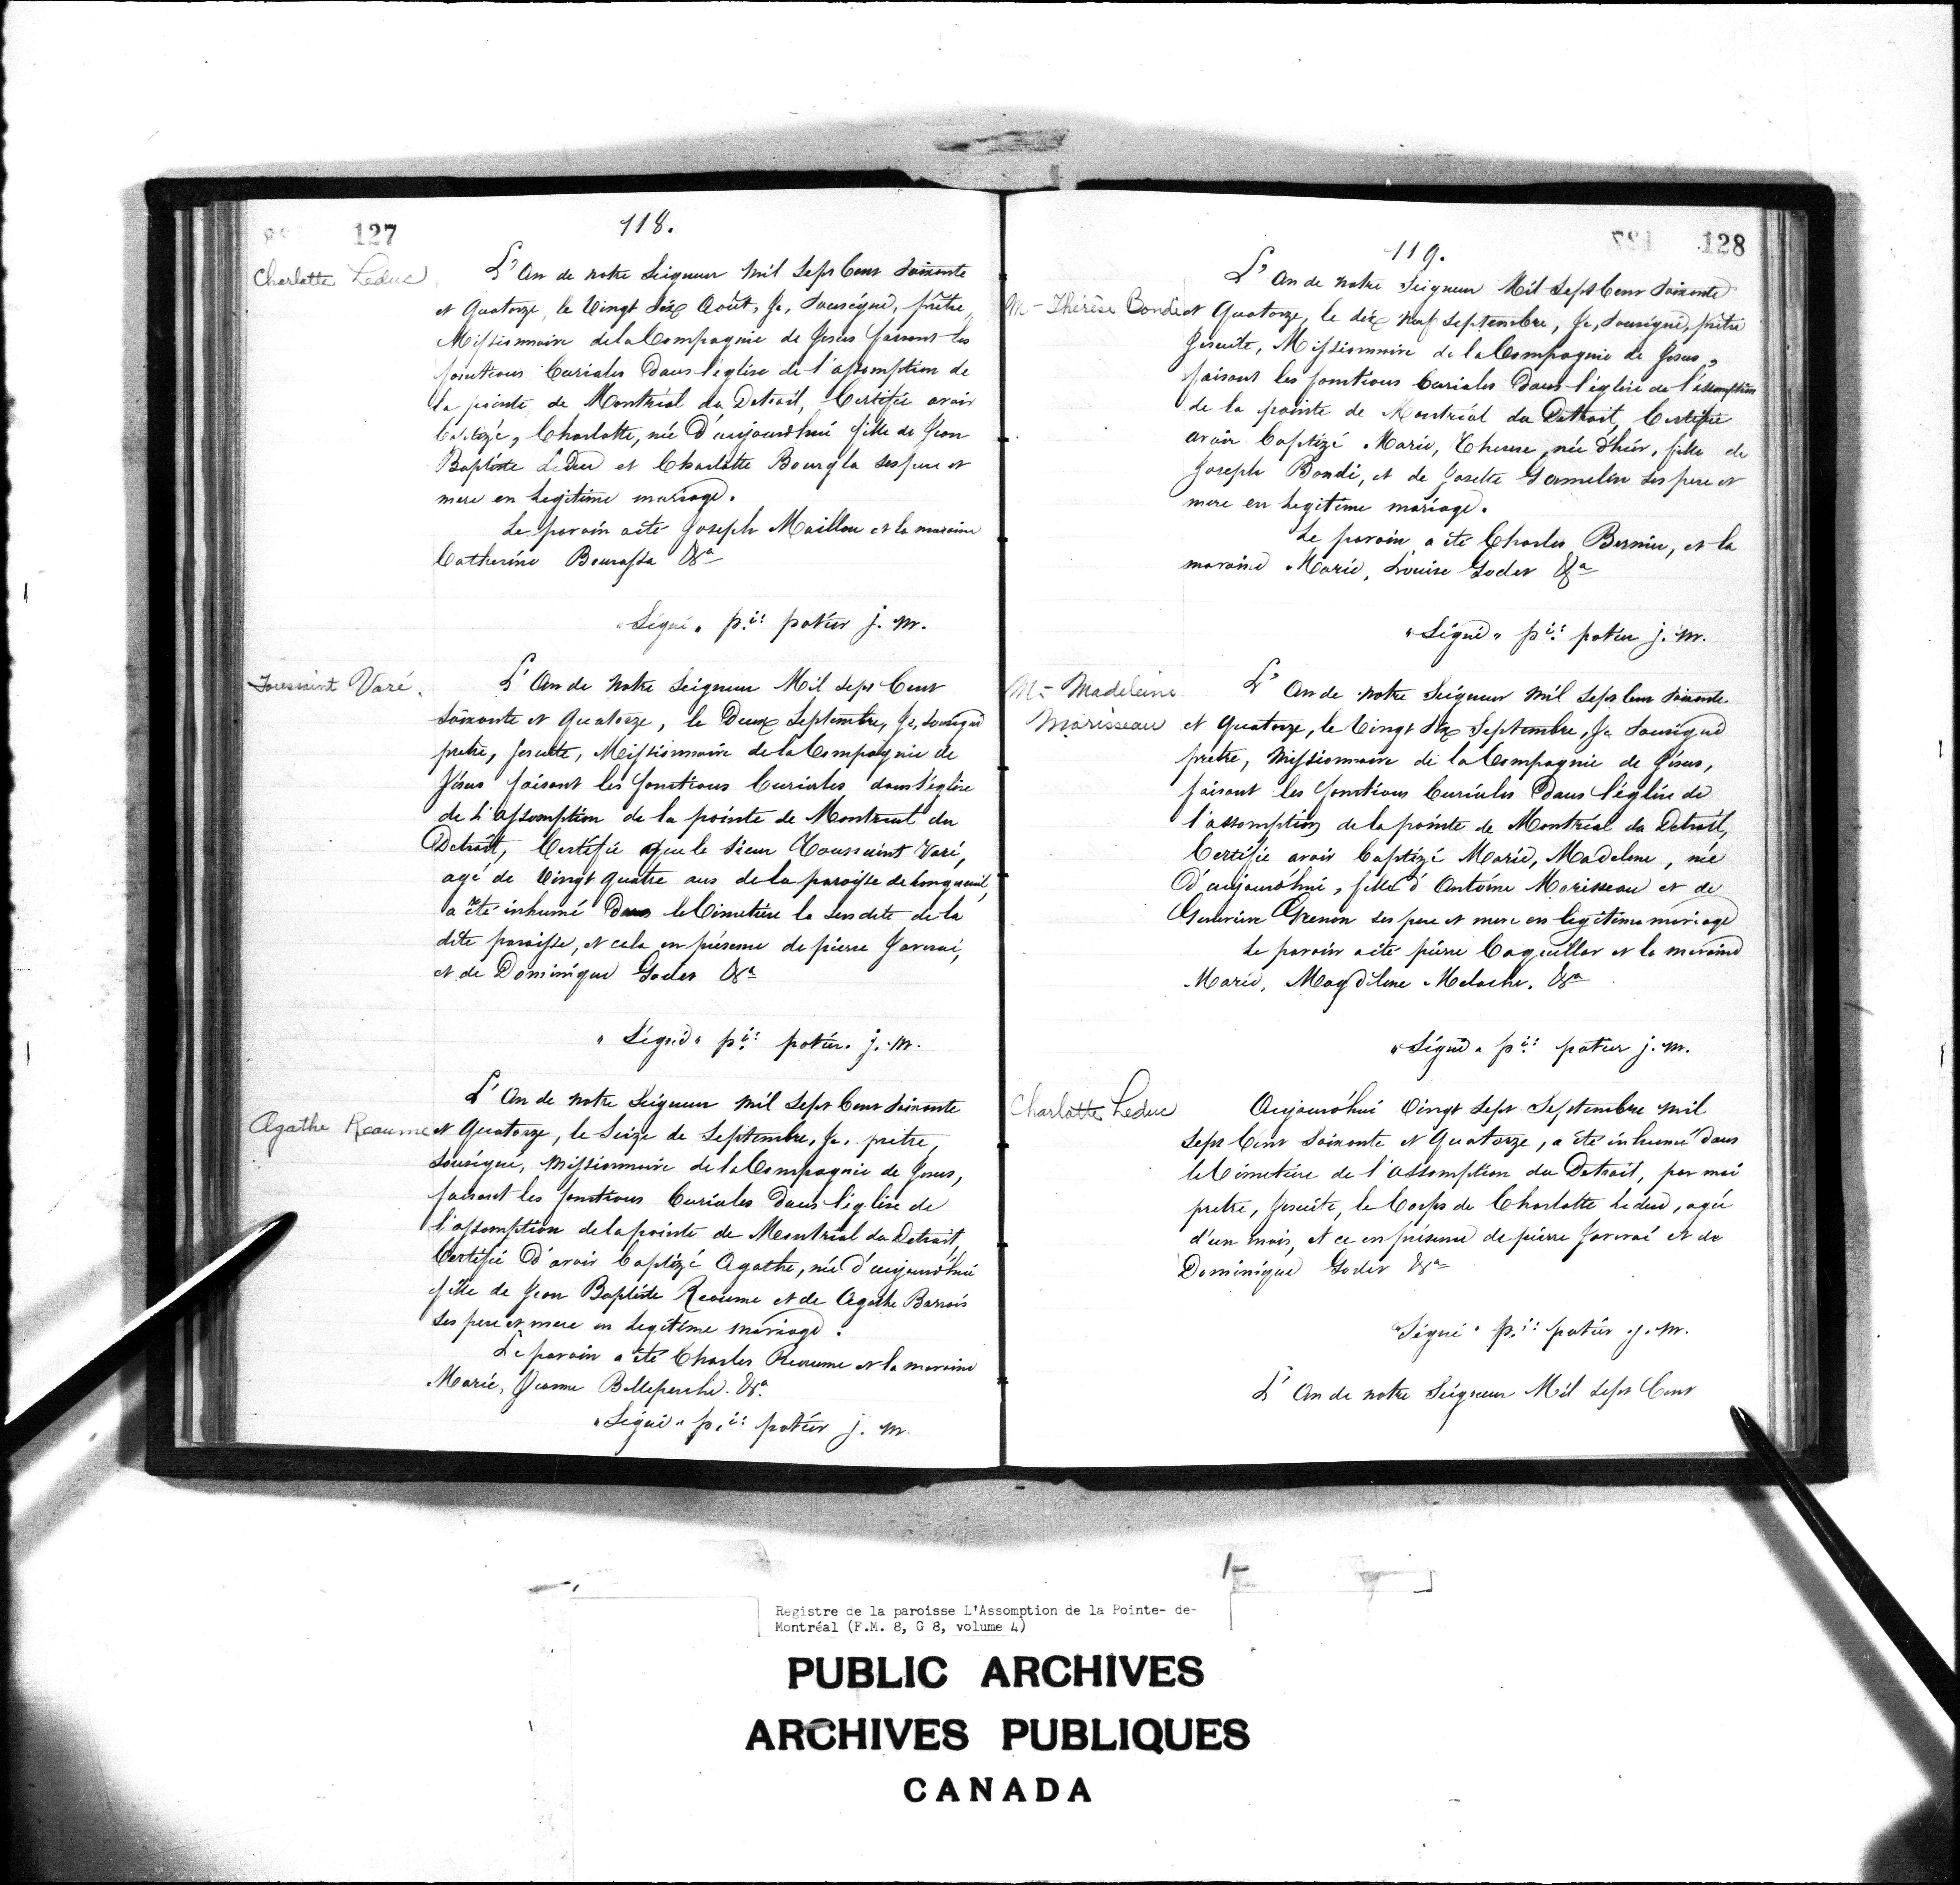 127
118.
Charlotte Leduc
L'An de notre Seigneur Mil Sept Cent Soixante
et Quatorze, le Vingt Six Août, Je, Soussigné, prêtre,
Missionnaire de la Compagnie de Jesus faisant les
fonctions Curiales dans l'église de l'assomption de
la pointe de Montréal du Detroit, Certifie avoir
baptizé, Charlotte, née D'aujourdhui fille de Jean
Baptiste LeDuc et Charlotte Bourgla ses pere et
mere en Legitime mariage.
Le parain a été Joseph Maillou et la maraine
Catherine Bourassa &a
"Signé" p.i: potier j. m.
Toussaint Varé.
L'An de Notre Seigneur Mil Sept Cent
Soixante et Quatorze, le Deux Septembre, Je, Sousigné
pretre, Jesuite, Missionnaire de la Compagnie de
Jésus faisant les fonctions Curiales dans l'église
de L'assomption de la pointe de Montreal du
Detroit, Certifie que le Sieur Toussaint Varé,
agé de Vingt quatre ans de la paroisse de Longueuil,
a été inhumé Dans le Cimetière la susdite de la
dite paroisse, et cela en présence de pierre Javerai,
et de Dominique Godet &a
"Signé" p.i: potier. j. m.
Agathe Reaume
L'An de notre Seigneur Mil Sept Cent Soixante
et Quatorze, le Seize de Septembre, Je, pretre,
Sousigné, Missionnaire de la Compagnie de Jesus,
faisant les fonctions Curiales Dans l'église de
l'assomption de la pointe de Montréal du Detroit,
Certifie D'avoir baptizé Agathe, née d'aujourdhui
fille de Jean Baptiste Reaume et de Agathe Barrois
ses pere et mere en Legitime mariage.
Le parain a été Charles Reaume et la maraine
Marie, Jeanne Belleperche. &a
"Signé" p.i: potier j. m.
128
119.
M-Thérèse Bondi
L'An de notre Seigneur Mil Sept Cent Soixante
et Quatorze, le dix Neuf Septembre, Je, Sousigné, prêtre
Jesuite, Missionnaire de la Compagnie de Jesus,
faisant les fonctions Curiales Dans l'église de l'assomption
de la pointe de Montréal du Detroit, Certifie
avoir baptizé Marie, Therese, née d'hier, fille de
Joseph Bondi, et de Josette Gamelin ses pere et
mere en Legitime mariage.
Le parain a été Charles Bernier, et la
maraine Marie, Louise Godet &a
"Signé" p.i: potier j. m.
M-Madeleine
Morisseau
L'An de notre Seigneur Mil Sept Cent Soixante
et Quatorze, le Vingt Six Septembre, Je Sousigné
pretre, Missionnaire de la Compagnie de Jésus,
faisant les fonctions Curiales Dans l'église de
l'assomption de la pointe de Montréal du Detroit,
Certifie avoir baptizé Marie, Madelene, née
D'aujourd'hui, fille d'Antoine Morisseau et de
Genevieve Grenon ses pere et mere en legitime mariage
Le parain a été pierre Caquillar et la maraine
Marie, Magdelene Meloche. &a
"Signé" p.i: potier j. m.
Charlotte Leduc
Aujourd'hui Vingt Sept Septembre Mil
Sept Cent Soixante et Quatorze, a été inhumé dans
le Cimetiere de l'assomption du Detroit, par moi
pretre, Jesuite, le Corps de Charlotte Leduc, agée
d'un mois, et ce en présence de pierre Javerai et de
Dominique Godet &a
"Signé" p.i: potier j. m.
L'An de notre Seigneur Mil Sept Cent
Registre de la paroisse L'Assomption de la Pointe- de-
Montréal (F.M. 8, G 8, volume 4)
PUBLIC ARCHIVES
ARCHIVES PUBLIQUES
CANADA